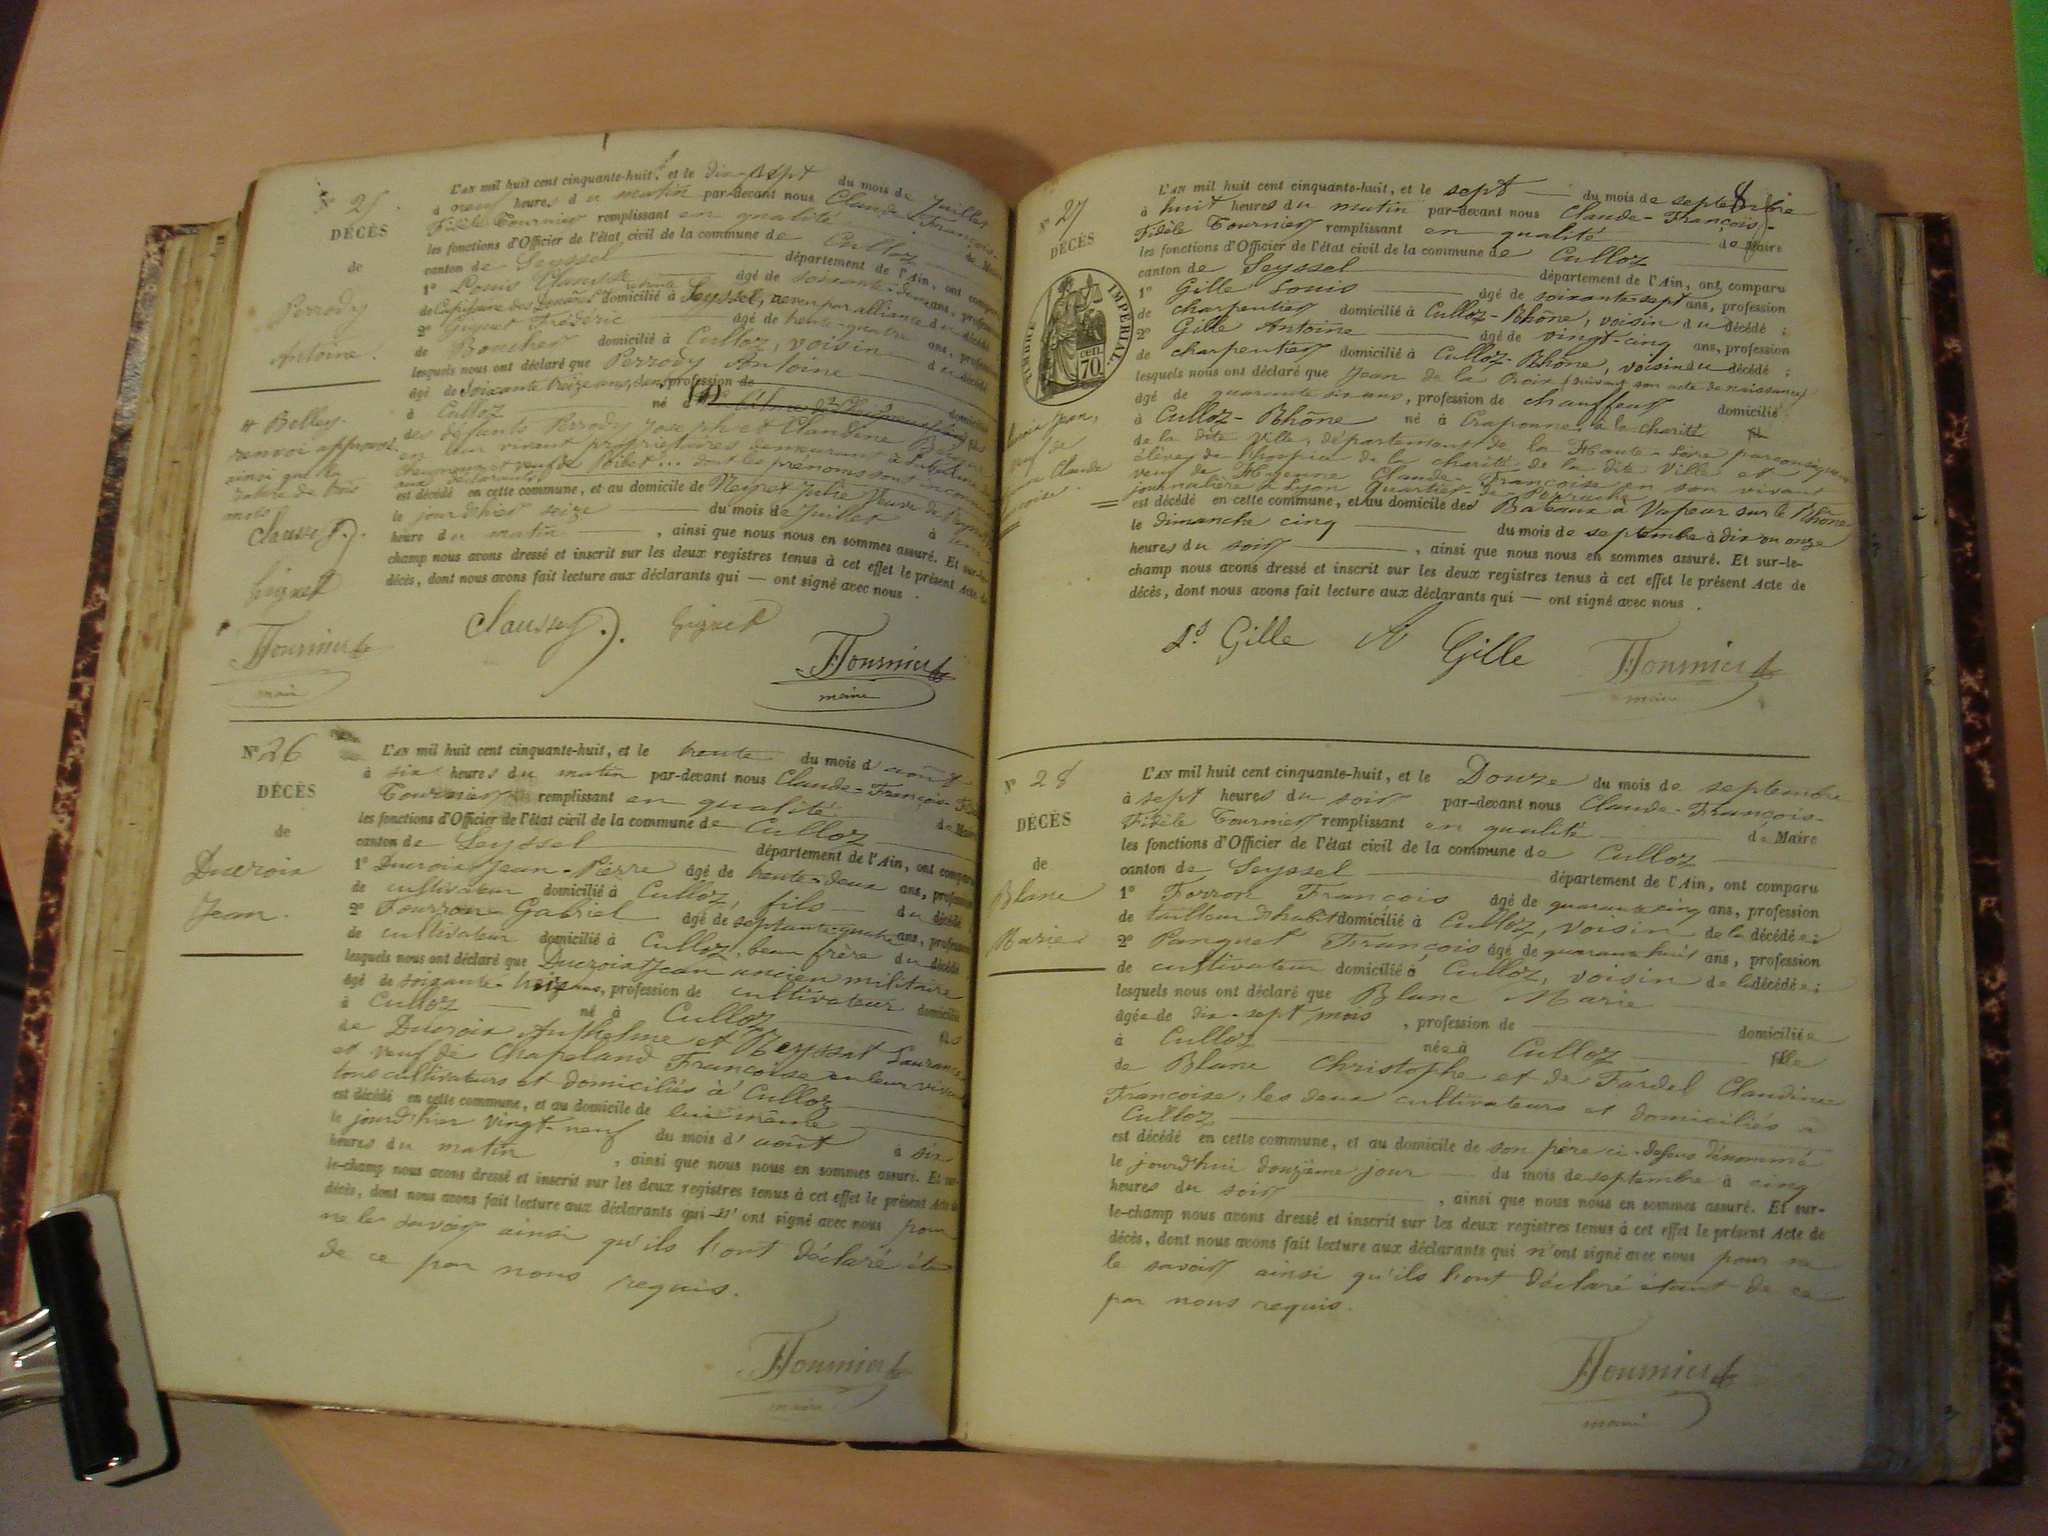 N° 25
DÉCÈS
de
Perrody
Antoine.
L'AN mil huit cent cinquante-huit, et le dix-sept du mois de juillet
à neuf heures du matin par-devant nous Claude-François-
Fidèle Tournier remplissant en qualité de Maire
les fonctions d'Officier de l'état civil de la commune de Culloz
canton de Seyssel département de l'Ain, ont comparu
1° Louis âgé de ans, profession
de domicilié à Seyssel, par alliance du décédé
2° Frédéric âgé de trente-quatre ans, profession
de Boucher domicilié à Culloz, voisin du décédé
lesquels nous ont déclaré que Perrody Antoine
âgé de soixante treize ans, profession de domicilié
à Culloz né
des défunts Perrody Joseph et Claudine
en leur vivant propriétaires demeurant à
et veuf de dont les prénoms sont
aux déclarants
est décédé en cette commune, et au domicile de Neyret Julie Veuve de
le jourd'hier seize du mois de juillet à
heure du matin , ainsi que nous nous en sommes assuré. Et sur-le-
champ nous avons dressé et inscrit sur les deux registres tenus à cet effet le présent Acte de
décès, dont nous avons fait lecture aux déclarants qui — ont signé avec nous .
# Belley.
renvoi approuvé
ainsi que la
rature de trois
mots
Tournier
maire
Tournier
maire
N° 26
DÉCÈS
de
Ducroix
Jean.
L'AN mil huit cent cinquante-huit, et le trente du mois d'août
à six heures du matin par-devant nous Claude-François-
Tournier remplissant en qualité de Maire
les fonctions d'Officier de l'état civil de la commune de Culloz
canton de Seyssel département de l'Ain, ont comparu
1° Ducroix Jean-Pierre âgé de trente-deux ans, profession
de cultivateur domicilié à Culloz, fils du décédé
2° Fourron Gabriel âgé de septante-quatre ans, profession
de cultivateur domicilié à Culloz, beau frère du décédé
lesquels nous ont déclaré que Ducroix Jean ancien militaire
âgé de soixante-treize ans, profession de cultivateur domicilié
à Culloz né à Culloz fils
de Ducroix Anthelme et Reyssat Laurance
et veuf de Chapeland Françoise en leur vivant
tous cultivateurs et domiciliés à Culloz
est décédé en cette commune, et au domicile de lui-même
le jourd'hier vingt-neuf du mois d'août à six
heures du matin , ainsi que nous nous en sommes assuré. Et sur-
le-champ nous avons dressé et inscrit sur les deux registres tenus à cet effet le présent Acte de
décès, dont nous avons fait lecture aux déclarants qui n'ont signé avec nous pour
ne le savoir ainsi qu'ils l'ont déclaré étant
de ce par nous requis.
Tournier
maire
N° 27
DÉCÈS
TIMBRE IMPÉRIAL.
70 cen.
Jean,
veuf de
Claude
Françoise.
L'AN mil huit cent cinquante-huit, et le sept du mois de septembre
à huit heures du matin par-devant nous Claude-François-
Fidèle Tournier remplissant en qualité de Maire
les fonctions d'Officier de l'état civil de la commune de Culloz
canton de Seyssel département de l'Ain, ont comparu
1° Gille Louis âgé de soixante-sept ans, profession
de charpentier domicilié à Culloz-Rhône, voisin du décédé ;
2° Gille Antoine âgé de vingt-cinq ans, profession
de charpentier domicilié à Culloz-Rhône, voisin du décédé ;
lesquels nous ont déclaré que Jean de la Croix (suivant son acte de naissance)
âgé de quarante six ans, profession de chauffeur domicilié
à Culloz-Rhône né à Craponne, à la charité
de la dite Ville, département de la Haute-Loire
élève de l'hospice de la charité de la dite Ville et
veuf de Claude-Françoise en son vivant
journalière à Lyon Quartier-de-Perrache
est décédé en cette commune, et au domicile des Bateaux à Vapeur sur le Rhône
le dimanche cinq du mois de septembre à dix ou onze
heures du soir , ainsi que nous nous en sommes assuré. Et sur-le-
champ nous avons dressé et inscrit sur les deux registres tenus à cet effet le présent Acte de
décès, dont nous avons fait lecture aux déclarants qui — ont signé avec nous .
Ls Gille A Gille Tournier
maire
N° 28
DÉCÈS
de
Blanc
Marie
L'AN mil huit cent cinquante-huit, et le Douze du mois de septembre
à sept heures du soir par-devant nous Claude-François-
Fidèle Tournier remplissant en qualité de Maire
les fonctions d'Officier de l'état civil de la commune de Culloz
canton de Seyssel département de l'Ain, ont comparu
1° Forron François âgé de quarante cinq ans, profession
de tailleur d'habit domicilié à Culloz, voisin de la décédée ;
2° Panguet François âgé de quarante huit ans, profession
de cultivateur domicilié à Culloz, voisin de la décédée ;
lesquels nous ont déclaré que Blanc Marie
âgée de dix-sept mois , profession de domiciliée
à Culloz née à Culloz fille
de Blanc Christophe et de Fardel Claudine
Françoise, les deux cultivateurs et domiciliés à
Culloz
est décédé en cette commune, et au domicile de son père ci-dessus dénommé
le jourd'hui douzième jour du mois de septembre à cinq
heures du soir , ainsi que nous nous en sommes assuré. Et sur-
le-champ nous avons dressé et inscrit sur les deux registres tenus à cet effet le présent Acte de
décès, dont nous avons fait lecture aux déclarants qui n'ont signé avec nous pour ne
le savoir ainsi qu'ils l'ont déclaré étant de ce
par nous requis.
Tournier
maire